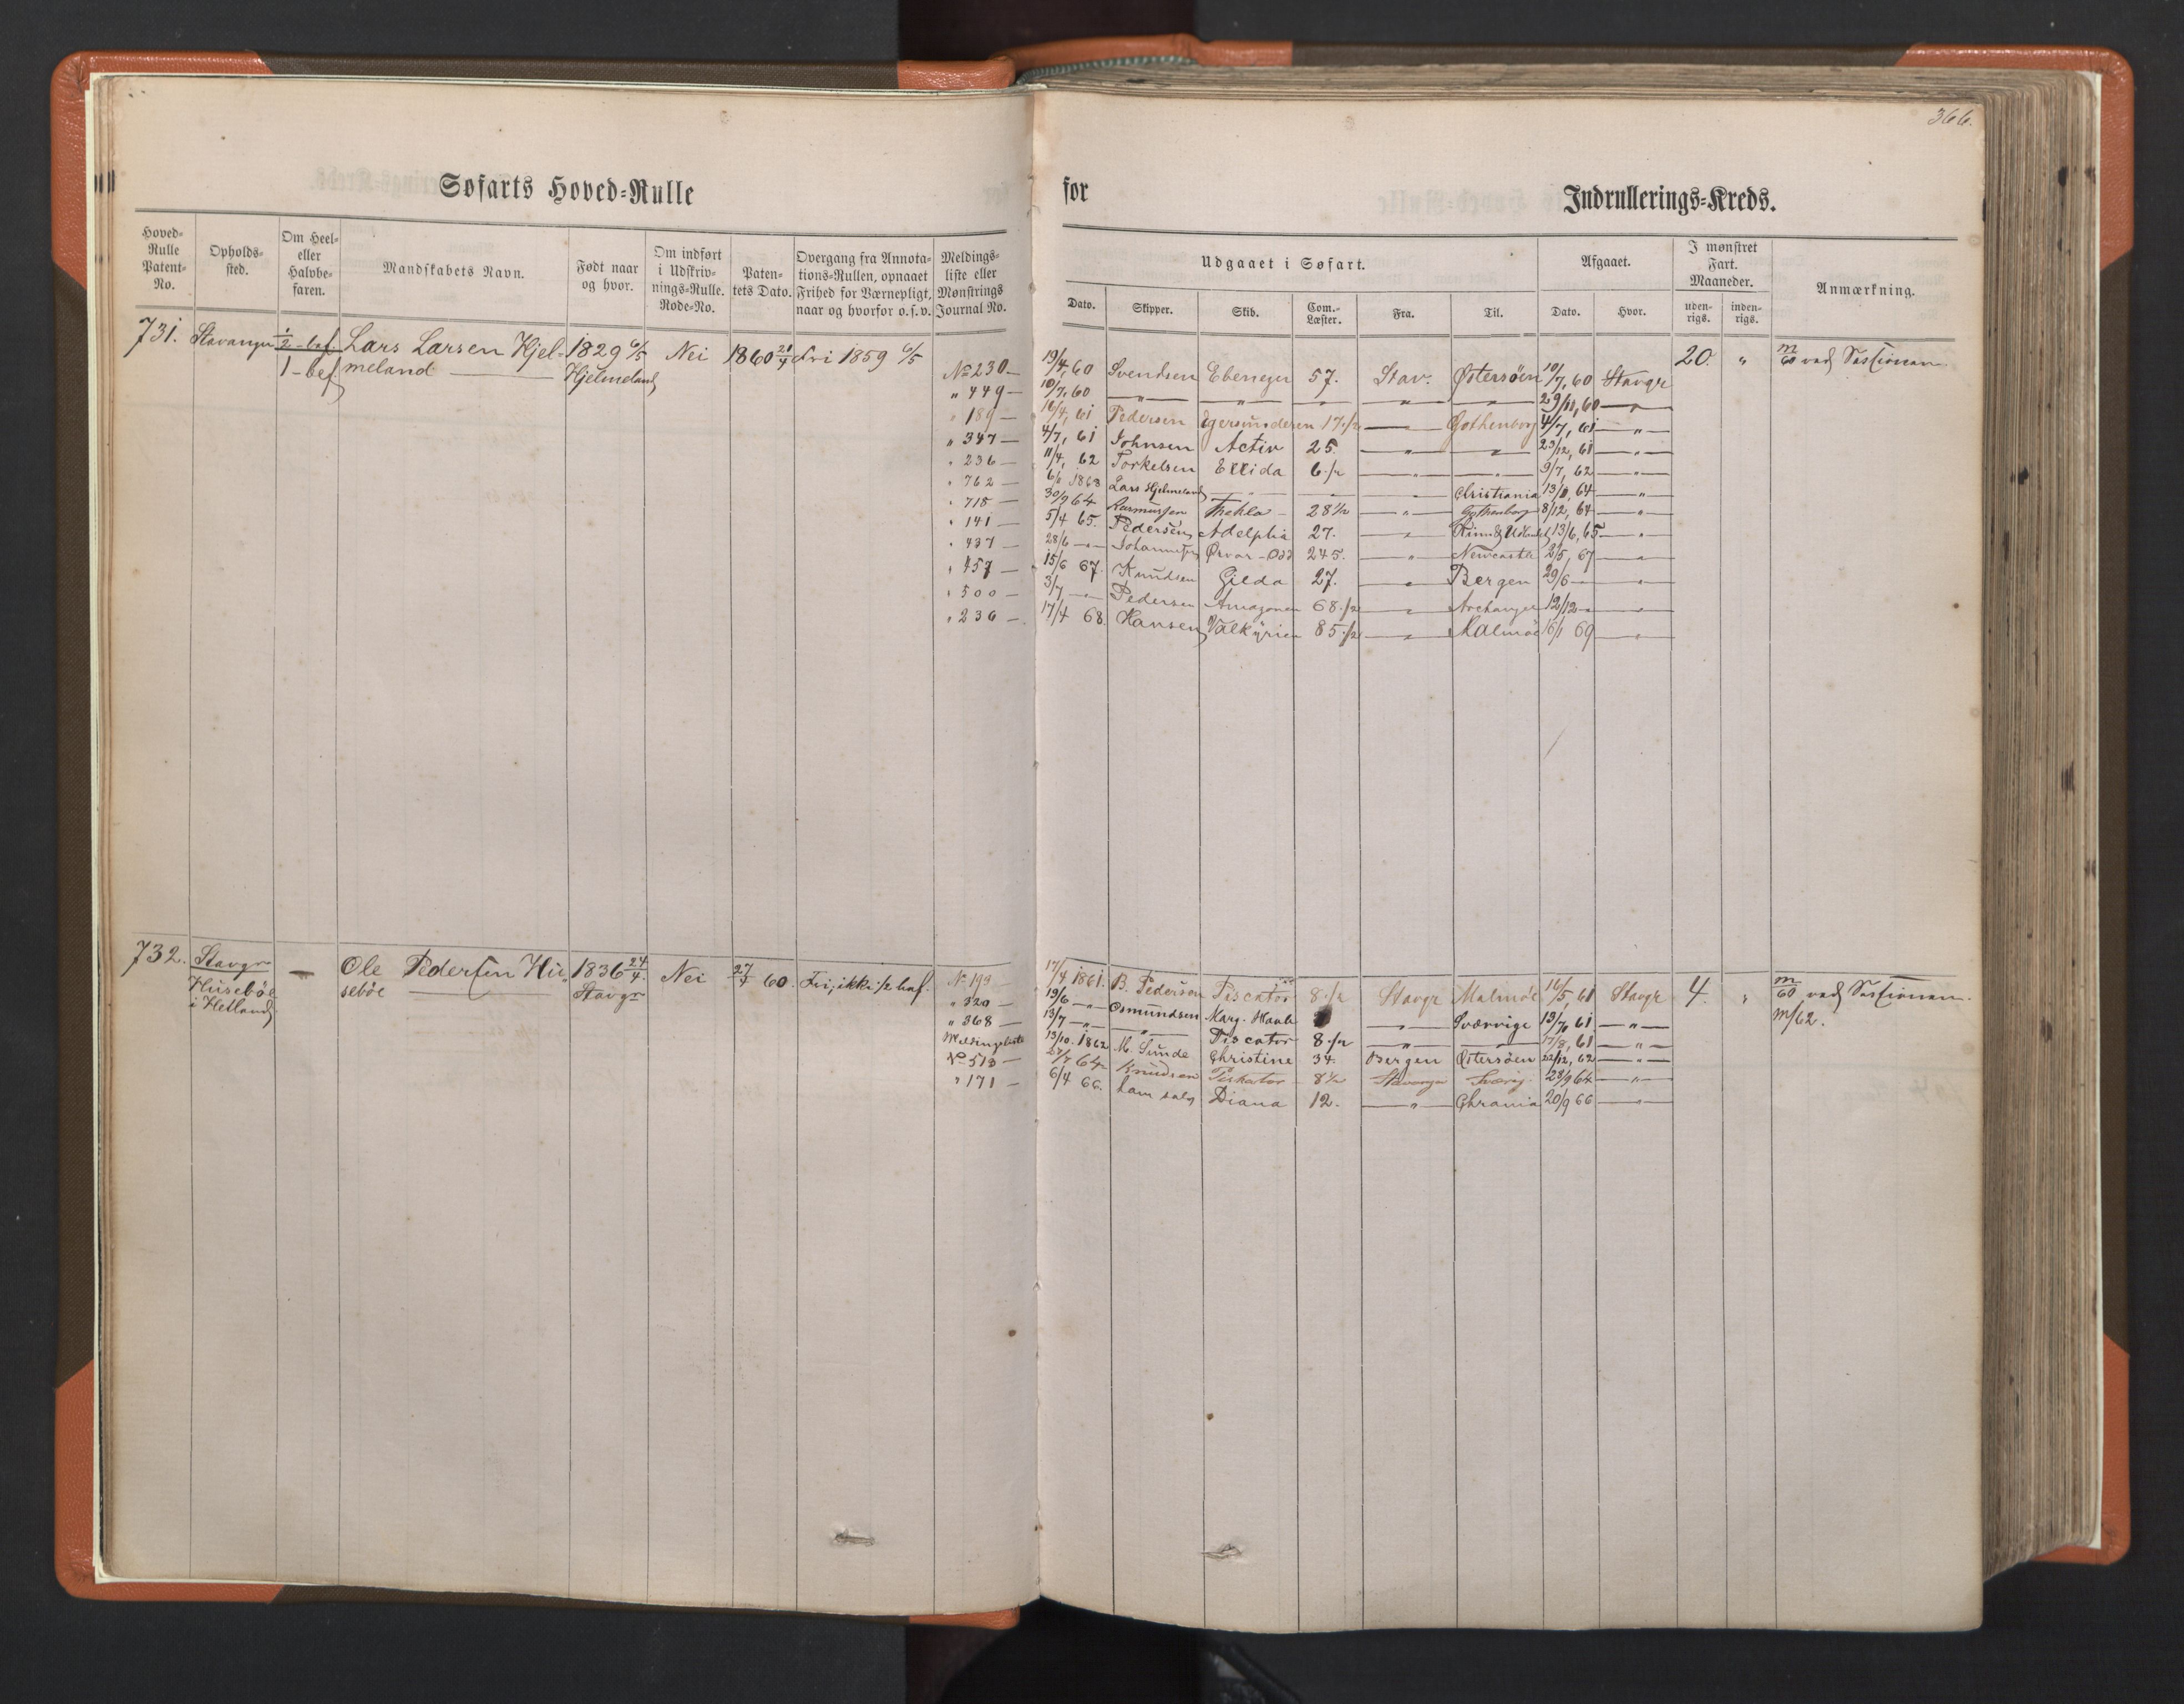 366.
Søfarts Hoved-Rulle
for Indrullerings-Kreds.
Hoved-Rulle Patent-No.
Opholds-sted.
Om Heel- eller Halvbe-faren.
Mandskabets Navn.
Født naar og hvor.
Om indført i Udskriv-nings-Rulle. Rode-No.
Paten-tets Dato.
Overgang fra Annota-tions-Rullen, opnaaet Frihed for Værnepligt, naar og hvorfor o.s.v.
Meldings-liste eller Mønstrings Journal No.
Udgaaet i Søfart.
Dato. Skipper. Skib. Com.-Læster. Fra. Til.
Afgaaet.
Dato. Hvor.
I mønstret Fart. Maaneder.
uden-rigs. inden-rigs.
Anmærkning.
731. Stavanger 1/2 - bef. Lars Larsen Hjel- 1829 6/5 Nei 1860 21/4 Fri 1859 6/5
1 - bef meland Hjelmeland
No 230 — 19/4, 60 Svendsen Ebeneger 57. Stav. Østersøen 10/7, 60 Stavgr 20. " m/60 ved Sessionen.
" 449 — 10/7, 60 " " " " 29/11, 60 "
" 189 — 16/4, 61 Pedersen Egersunderen 17 1/2 " Gothenborg 4/7, 61 "
" 347 — 4/7, 61 Johnsen Activ 25. " " 23/12, 61 "
" 236 — 11/4, 62 Torkelsen Ellida 6 1/2 " " 9/7, 62 "
" 762 — 6/11 1863 Lars Hjelmeland " " " Christiania 13/8, 64 "
" 718 — 30/9 64 Rasmussen Thekla 28 1/2 " Gothenborg 8/12, 64 "
" 141 — 5/4 65. Pedersen Adelphia 27. " 13/6, 65 "
" 437 — 28/6 " Johannesen Ørvar-Odd 245. " Newcastle 2/5, 67 "
" 457 — 15/6 67. Knudsen Gilda 27. " Bergen 29/6 "
" 500 — 3/7, " Pedersen Amazonen 68 1/2 " Archangel 12/12 "
" 236 — 17/4 68. Hansen Valkyrien 85 1/2 " Malmøe 16/1 69 "
732. Stavgr — Ole Pedersen Hu- 1836 24/4. Nei 27/7 60. Fri, ikke 1/2 bef.
Husebøe sebøe Stavgr
i Hetland
No 193 — 17/4 1861. B. Pedersen Piscator 8 1/2 Stavgr Malmøe 16/5, 61 Stavgr 4. " m/60 ved Sessionen.
" 320 — 19/6 " Osmundsen Marg. Haab " Sværrige 13/7, 61 " m/62.
" 368 — 13/7 " " Piscator 8 1/2 " " 17/8, 61 "
Meldingsliste 13/10. 1862 M. Sunde Christine 34. Bergen Østersøen 22/12, 62 "
No 513 — 27/7 64 Knudsen Piskator 8 1/2 Stavanger Sverig 28/9 64 "
" 171 — 6/4 66. Diana 12. " Chrania 20/9 66 "